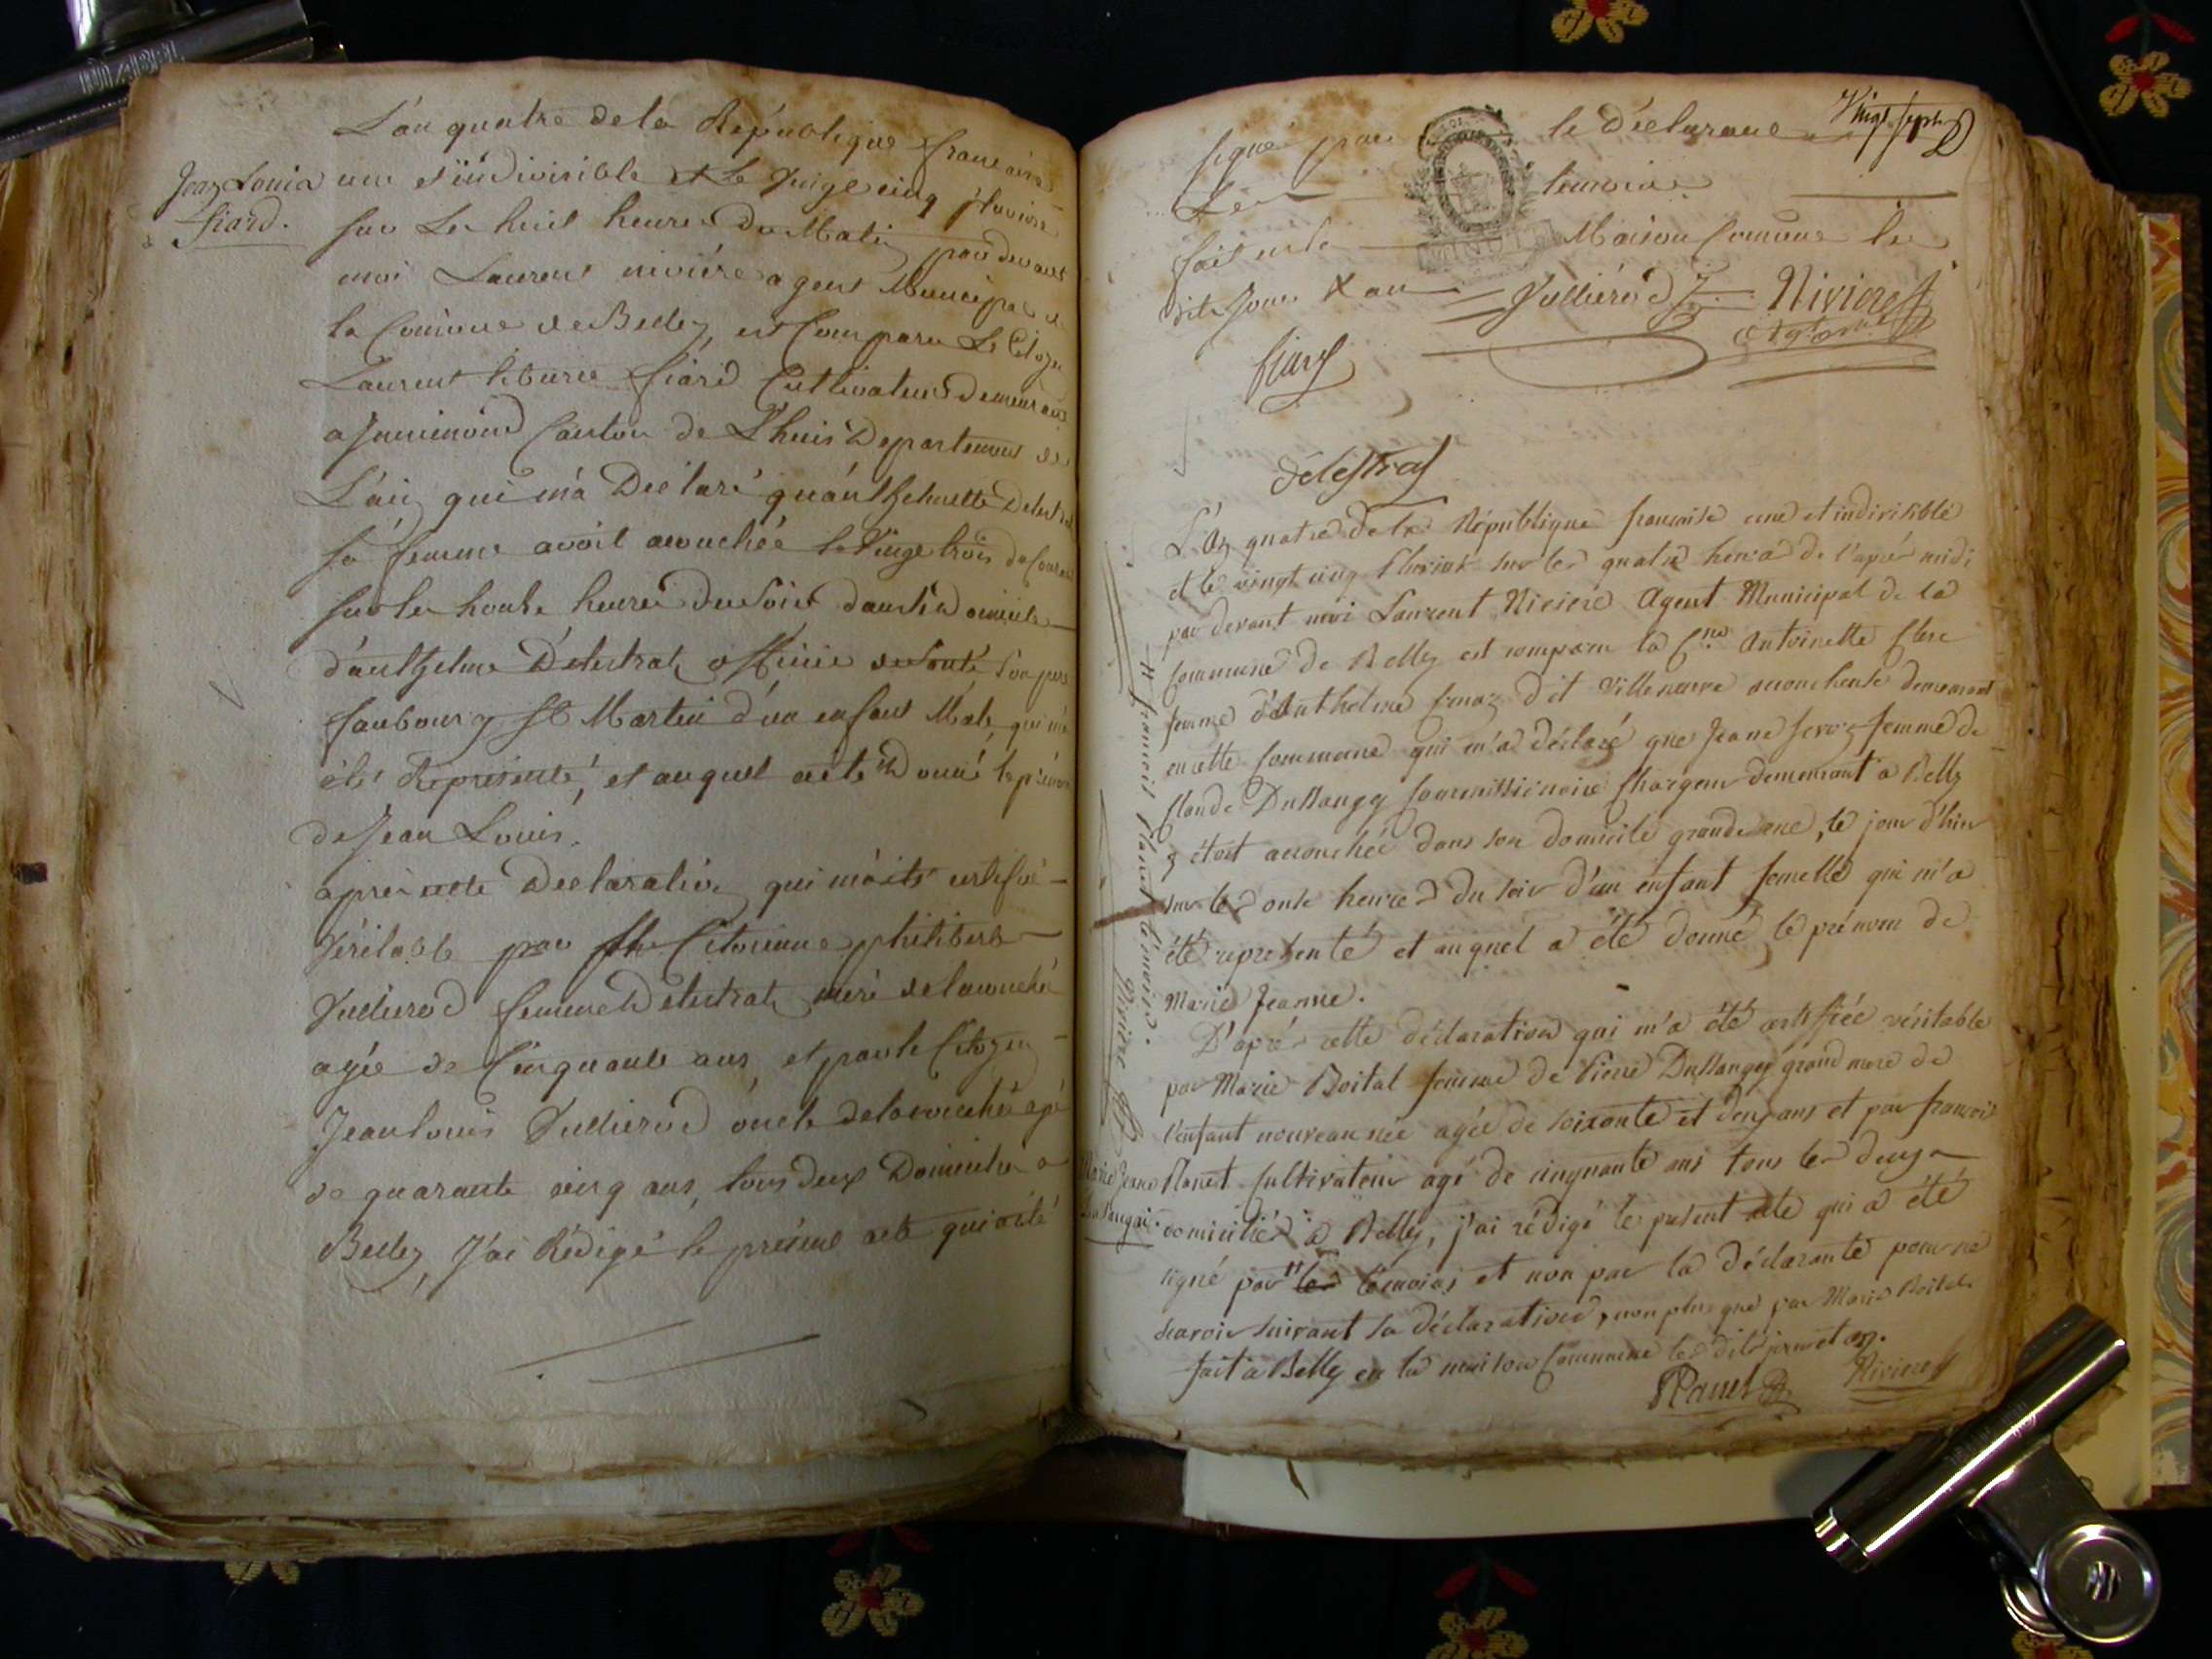 L'an quatre de la République francaise
Jean Louis
fiard.
une et indivisible et le vingt cinq pluviose
sur les huit heures du Matin pardevant
moi Laurent nivière agent Municipal de
la Commune de Belley, est Comparu Le Citoyen
Laurent tiburce fiard Cultivateur demeurant
a Canton de Lhuis Departement de
L'ain qui m'a Déclaré qu'anthelmette Delestrat
sa femme avoit acouchée le Vingt trois du Courant
sur les honze heures du Soir dans le domicile
d'anthelme Delestrat officié de Santé Son pere
faubourg St Martin d'un enfant Male, qui m'a
été Représenté, et auquel a été Donné le prénom
de Jean Louis.
apres cette Declaration qui m'a été certifié
Véritable par Citoienne philiberte
Jullierod femme Delestrat mere de l'acouchée
agée de Cinquante ans, et par le Citoyen
Jean louis Jullierod oncle de l'acouchée agé
de quarante cinq ans, tous deux Domicilié a
Belley, J'ai Rédigé le présent acte qui a été
signé par le Déclarant Vingt sept
Les temoins
fait en la Maison Commune les
dits Jour & an Jullierod Niviere
agt mal
fiard
délestrat
L'an quatre de la République francaise une et indivisible
et le vingt cinq Pluviose sur les quatre heures de l'après midi
par devant moi Laurent Niviere Agent Municipal de la
Commune de Belley est comparue la Cne Antoinette Clerc
femme d'Anthelme dit Villeneuve acoucheuse demeurant
en cette Commune qui m'a déclaré que Jeane femme de
Claude Dullaugey Commissionaire Chargeur demeurant a Belley
étoit accouchée dans son domicile grande rue, le jour d'hier
sur les onze heures du soir d'un enfant femelle qui m'a
été representé et auquel a été donné le prénom de
Marie Jeanne.
D'après cette déclaration qui m'a été certifiée véritable
par Marie Boital femme de Pierre Dullaugey grand mere de
l'enfant nouveau née agée de soixante et deux ans et par francois
Marie Jeane
Planet Cultivateur agé de cinquante ans tous les deux
domiciliés à Belley, j'ai rédigé le présent acte qui a été
signé par les témoins et non par la déclarante pour ne
scavoir suivant sa déclaration, non plus que par Marie Boital
fait à Belley en la maison Commune les dits jour et an.
Planet Niviere
francois Planet témoin. Niviere